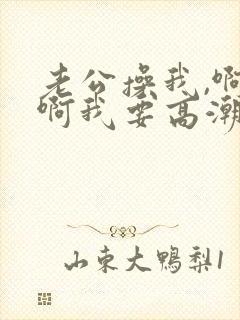 老公操我,啊
啊我要高潮
山东大鸭梨1